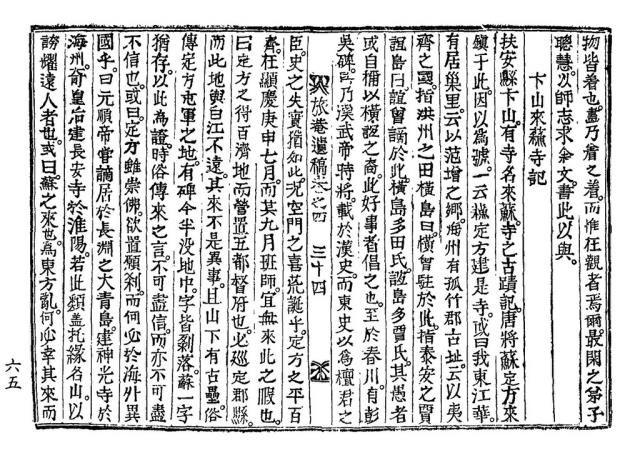 物皆着也盡乃着之着而惟在觀者焉爾最閑之弟子
聰慧以師志求余文書此以與
卞山來蘇寺記
扶安縣卞山有寺名來蘇寺之古蹟記唐將蘇定方來
鎭于此因以爲號一云蘇定方建是寺或曰我東江華
有居巢里云以范增之鄕海州有孤竹郡古址云以夷
齊之國指洪州之田橫島曰橫曾駐於此指泰安之賈
誼島曰誼曾謫於此橫島多田氏誼島多賈氏其愚者
或自桶以橫誼之裔此好事者倡之也至於春川自彭
吳碑乃漢武帝時將載於漢史而東史以爲檀君之
旅菴遺稿卷之四 三十四
臣史之失實猶如此况空門之喜誕乎定方之平百
濟在顯慶庚申七月而其九月班師宜無來此之暇也
曰定方之得百濟地而營置五都督府也必廵定郡縣
而此地與白江不遠其來不是異事且山下有古壘俗
傳定方屯軍之地有碑今半没地中字皆剥落蘇一字
猶存以此爲證時俗傳來之言不可盡信而亦不可盡
不信也或曰定方雖崇佛欲置願刹而何必於海外異
國乎曰元順帝嘗謫居於長淵之大青島建神光寺於
海州前皇后建長安寺於淮陽若此類盖托緣名山以
誇耀遠人者也或曰蘇之來也爲東方亂何必幸其來而
六五